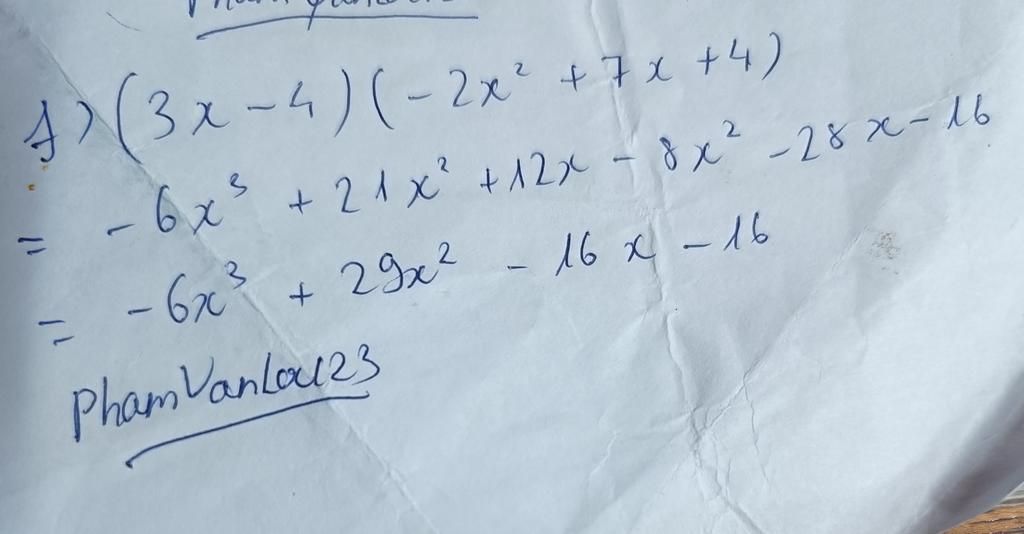 1) (3x - 4)(-2x² + 7x + 4)
= -6x³ + 21x² + 12x - 8x² - 28x - 16
= -6x³ + 29x² - 16x - 16
PhamVanLoc123